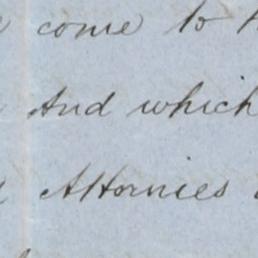 come to
And which
Attornies